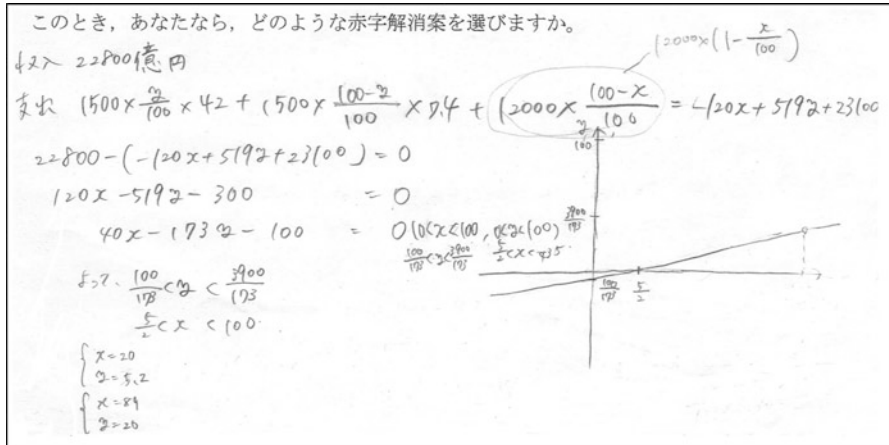 このとき，あなたなら，どのような赤字解消案を選びますか。
12000×(1-x/100)
収入 22800億円
支出 1500×y/100×42+1500×(100-y)/100×7.4+12000×(100-x)/100=-120x+519y+23100
22800-(-120x+519y+23100)=0
120x-519y-300=0
40x-173y-100=0 (0<x<100, 0<y<100)
100/173<y<3900/173 5/2<x<435
よって、100/173<y<3900/173
5/2<x<100
{x=20
y=5.2
{x=89
y=20
y
100
3900/173
100/173 5/2